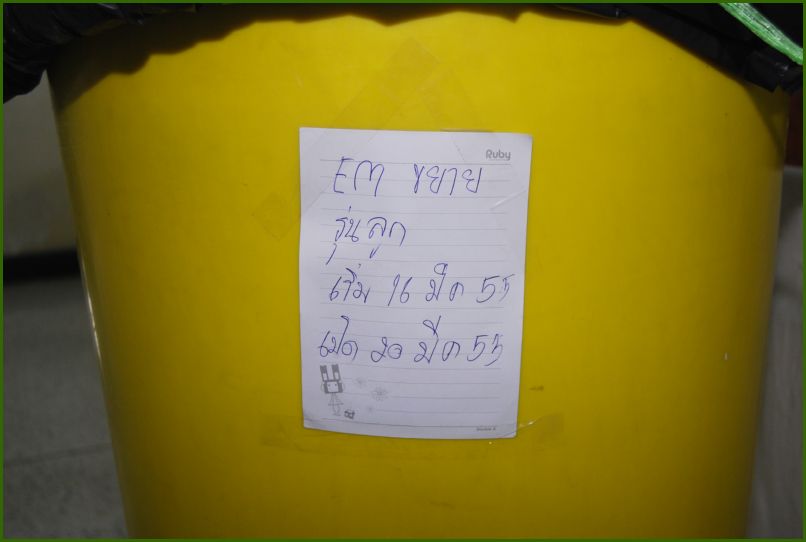 Ruby
EM ขยาย
รุ่นลูก
เริ่ม 16 มีค 55
เปิด 20 มีค 55